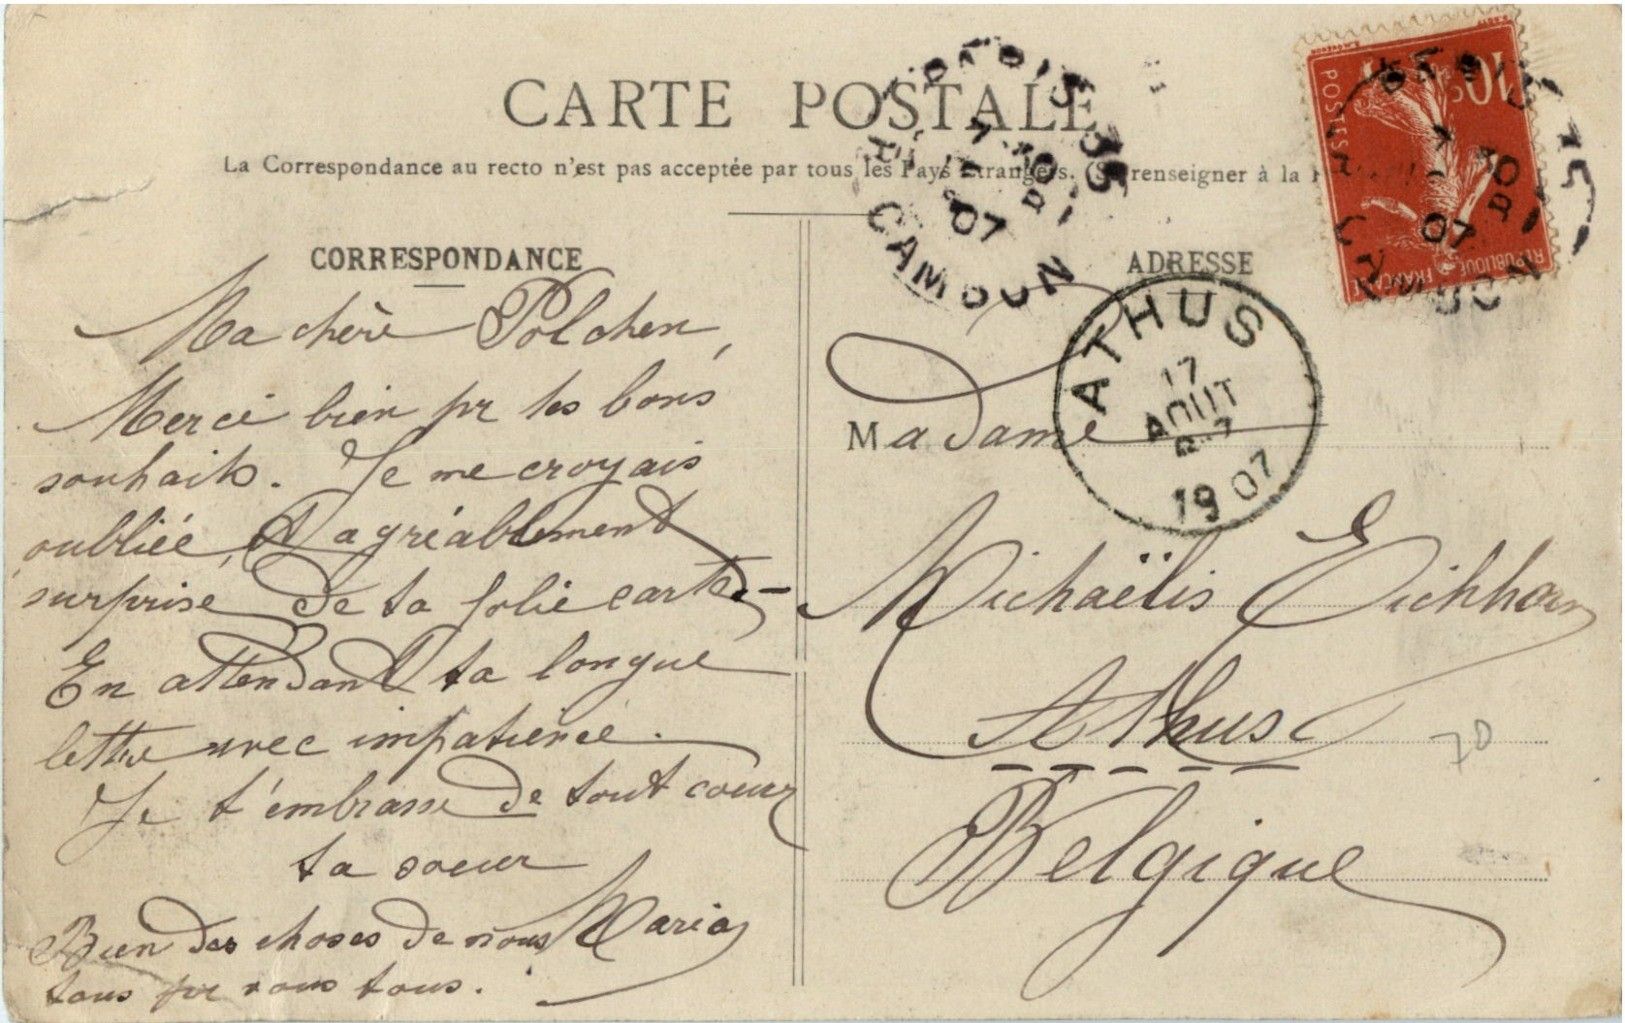 CARTE POSTALE
La Correspondance au recto n'est pas acceptée par tous les Pays Etrangers. (Se renseigner à la
CORRESPONDANCE
Ma chère Polchen,
Merci bien pr tes bons
souhaits. Je me croyais
oubliée, et agréablement
surprise de ta jolie carte. -
En attendant ta longue
lettre avec impatience.
Je t'embrasse de tout coeur
ta soeur
Maria
Bien des choses de nous
tous pr vous tous.
ADRESSE
Madame
Michaëlis Eichhorn
Athus
Belgique
70
PARIS 15
R. CAMBON
07
ATHUS
17
AOUT
1907
10c
POSTES
REPUBLIQUE FRANÇAISE
PARIS 15
R. CAMBON
07